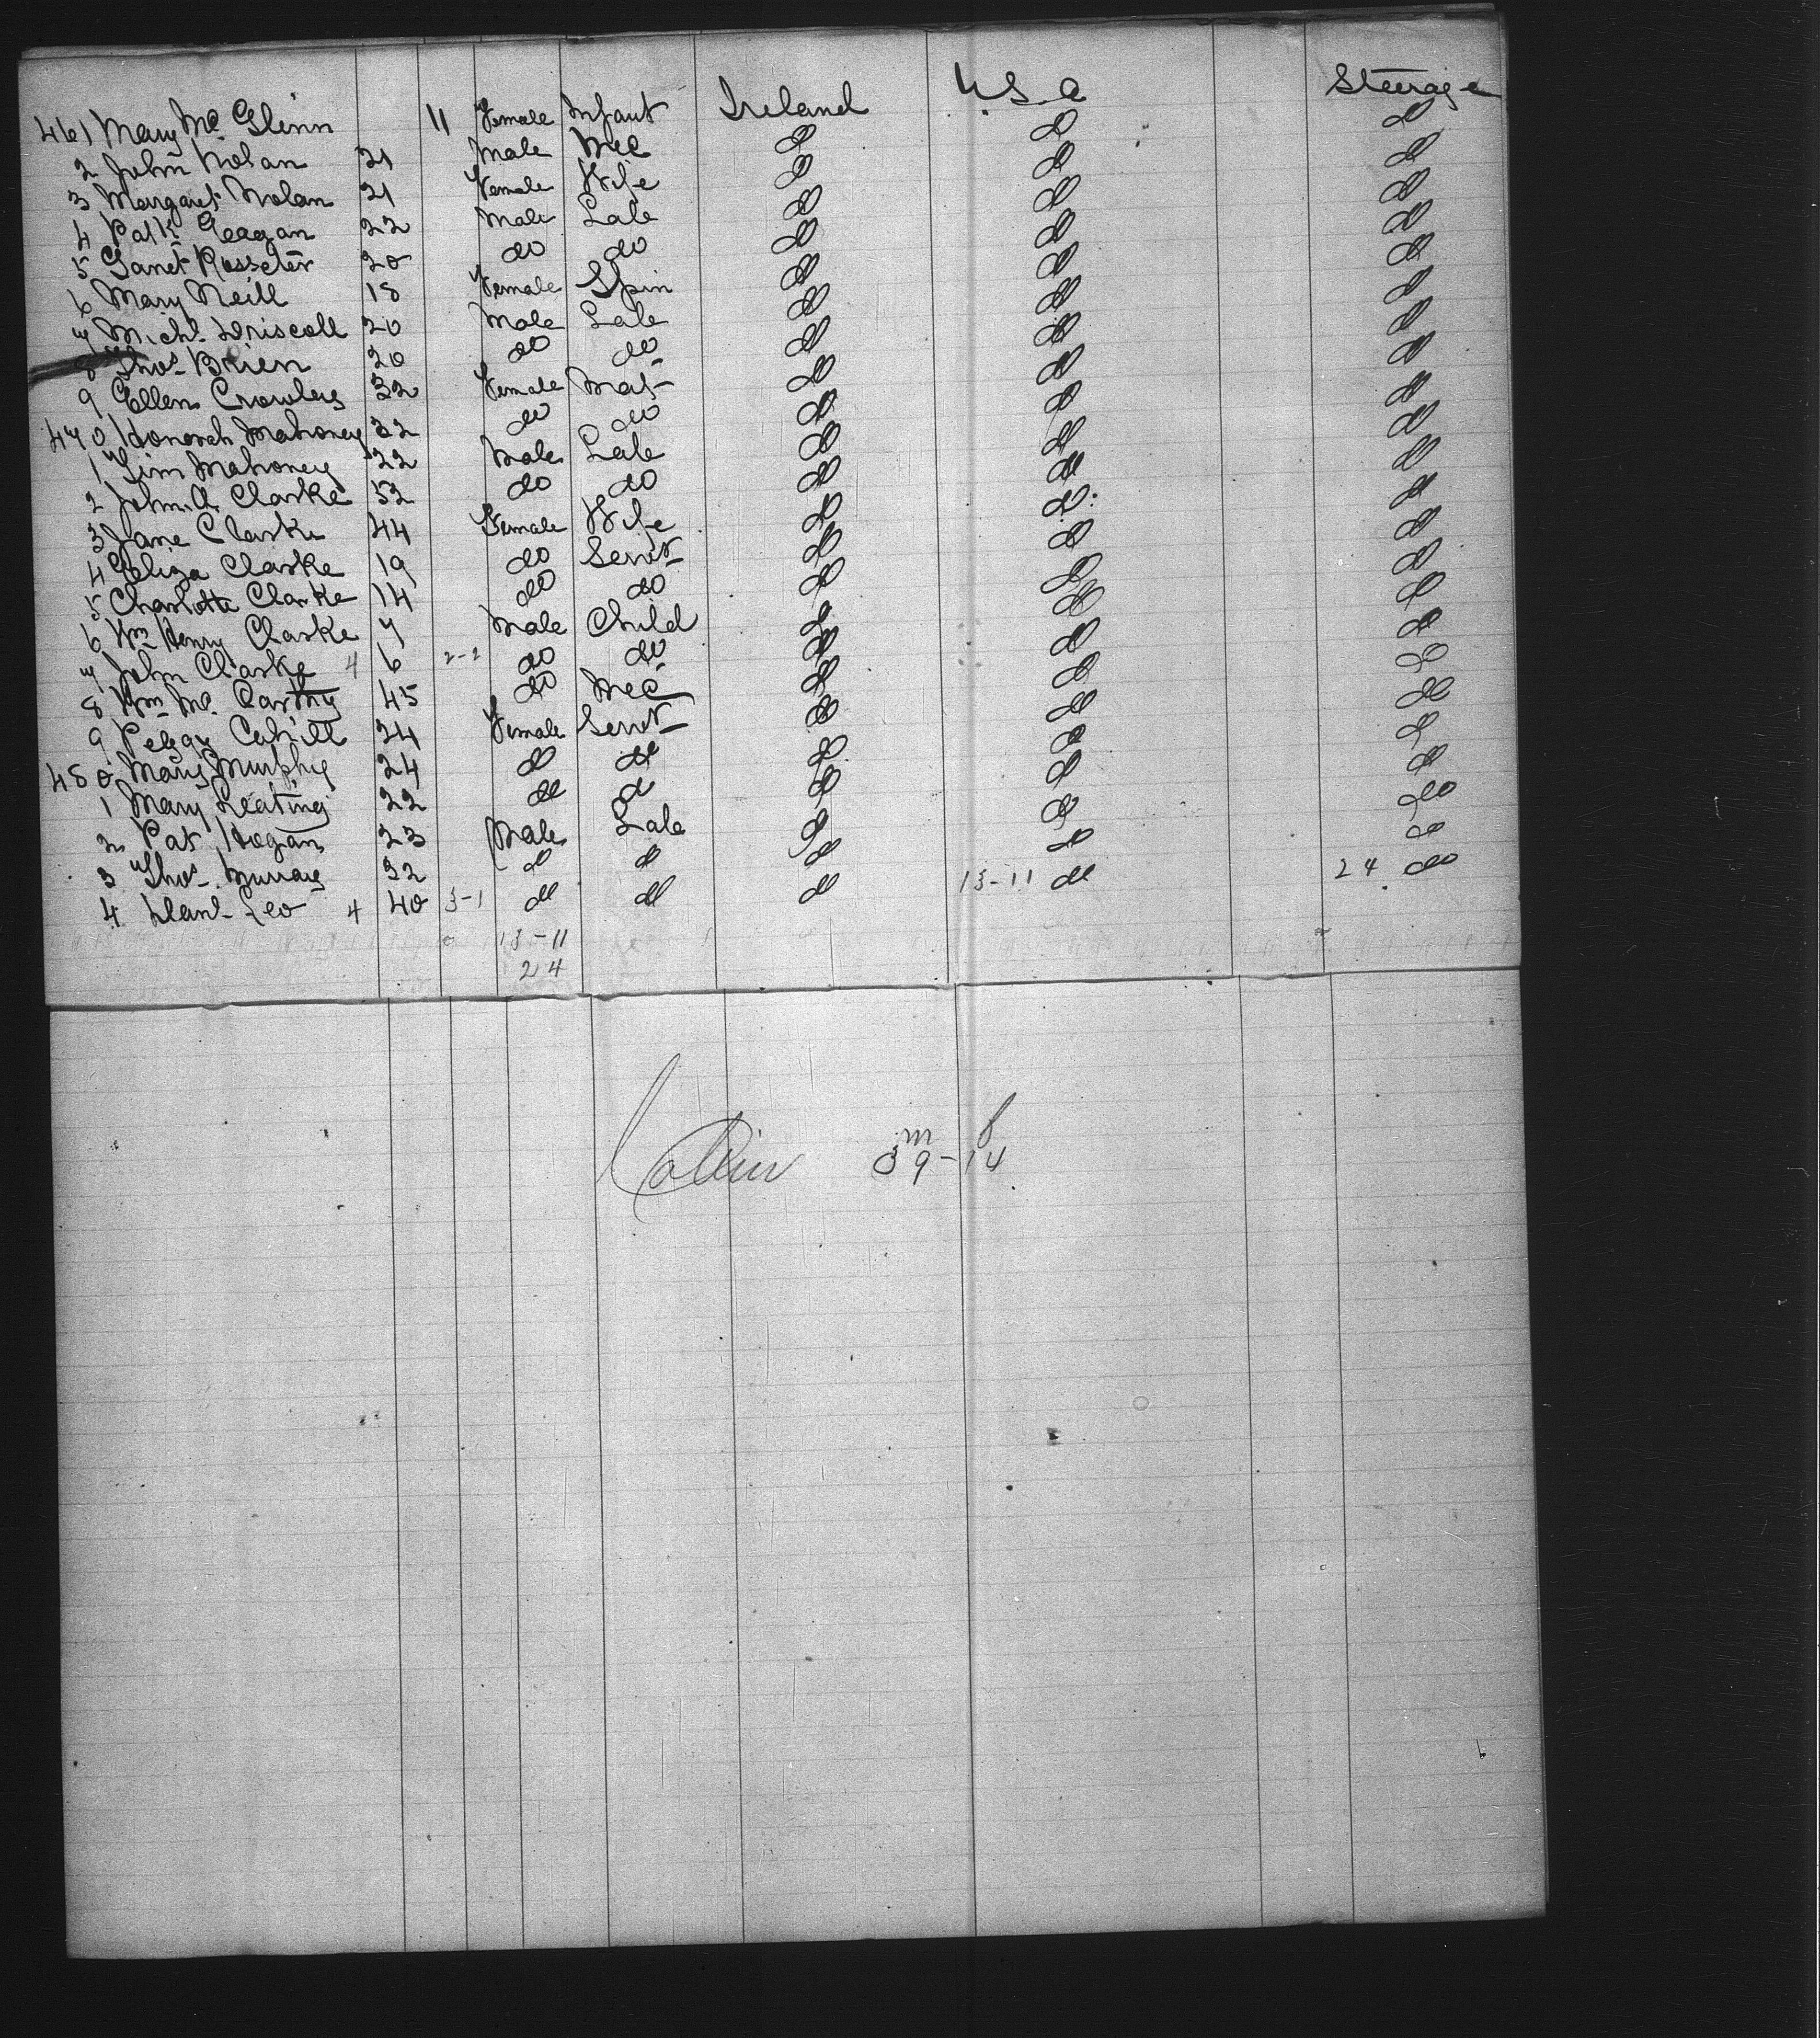 461 Mary Mc Glinn 11 Female Infant Ireland U.S.a Steerage
2 John Nolan 21 Male Mec do do do
3 Margaret Nolan 21 Female Wife do do do
4 Patk Geagan 22 Male Lab do do do
5 Garret Rosseter 20 do do do do do
6 Mary Neill 18 Female Spin do do do
7 Michl. Driscoll 20 Male Lab do do do
8 Thos Brien 20 do do do do do
9 Ellen Crowley 32 Female Mat do do do
470 Honorah Mahoney 32 do do do do do
1 Tim Mahoney 22 Male Lab do do do
2 John Clarke 52 do do do do do
3 Jane Clarke 44 Female Wife do do do
4 Eliza Clarke 19 do Servt do do do
5 Charlotte Clarke 14 do do do do do
6 Wm Henry Clarke 7 Male Child do do do
7 John Clarke 4 6 2-2 do do do do do
8 Wm Mc Carthy 45 do Mec do do do
9 Peggy Cahill 24 Female Servt do do do
480 Mary Murphy 24 do do do do do
1 Mary Keating 22 do do do do do
2 Pat Hogan 23 Male Lab do do do
3 Thos Murray 32 do do do do do
4 Danl Leo 4 40 3-1 do do do 13-11 do 24 do
13-11
24
m f
39-14